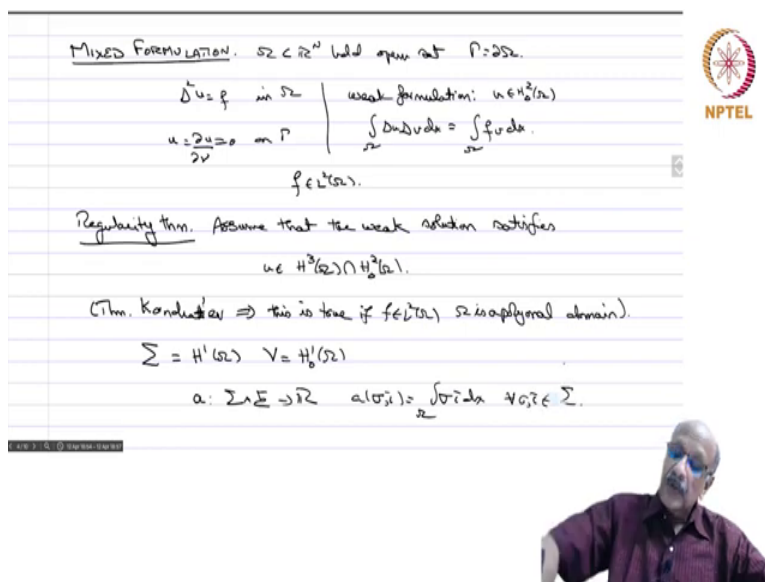 MIXED FORMULATION. Ω ⊂ ℝ^N bdd open set Γ = ∂Ω.
Δ²u = f in Ω | weak formulation: u ∈ H²₀(Ω)
u = ∂u/∂ν = 0 on Γ | ∫_Ω Δu Δv dx = ∫_Ω f v dx.
f ∈ L²(Ω).
NPTEL
Regularity thm. Assume that the weak solution satisfies
u ∈ H³(Ω) ∩ H²₀(Ω).
(Thm. ⇒ this is true if f ∈ L²(Ω) Ω is a polygonal domain).
Σ = H¹(Ω) V = H¹₀(Ω)
a: Σ × Σ → ℝ a(σ,τ) = ∫_Ω σ τ dx ∀ σ,τ ∈ Σ.